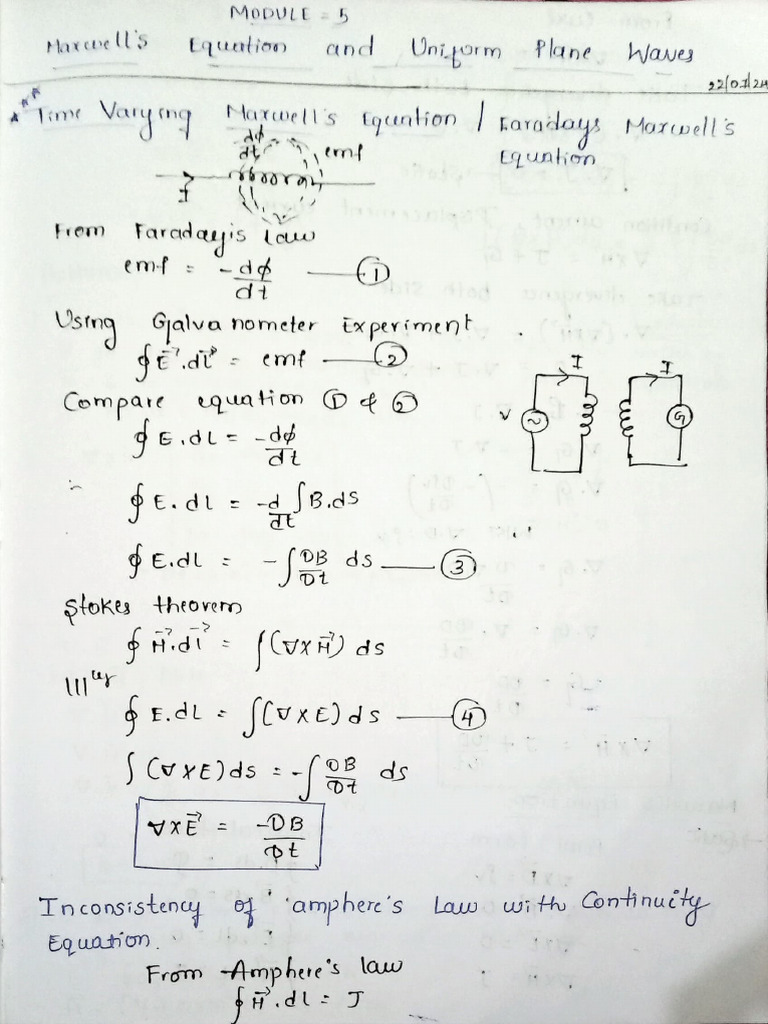 MODULE = 5
Maxwell's Equation and Uniform Plane Waves
22/07/24
*** Time Varying Maxwell's Equntion / Faradays Maxwell's Equntion
dφ/dt emf
I
From Faraday's law
emf = -dφ/dt —— ①
Using Galvanometer Experiment
∮E⃗.dl⃗ = emf —— ②
Compare equation ① & ②
I I
V G
∮E.dL = -dφ/dt
∮E.dL = -d/dt ∫B.dS
∮E.dL = -∫∂B/∂t ds —— ③
Stokes theorem
∮H⃗.dl⃗ = ∫(∇×H⃗) ds
|||ly
∮E.dL = ∫(∇×E) ds —— ④
∫(∇×E)ds = -∫∂B/∂t ds
∇×E⃗ = -∂B/∂t
Inconsistency of amphere's Law with Continuity
Equation.
From Amphere's law
∮H⃗.dL = J